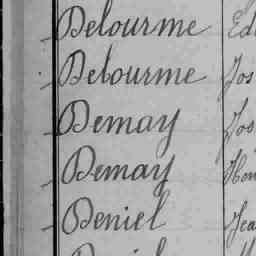 Delourme Ed
Delourme Jos
Demay Jos
Demay Hen
Deniel Jea